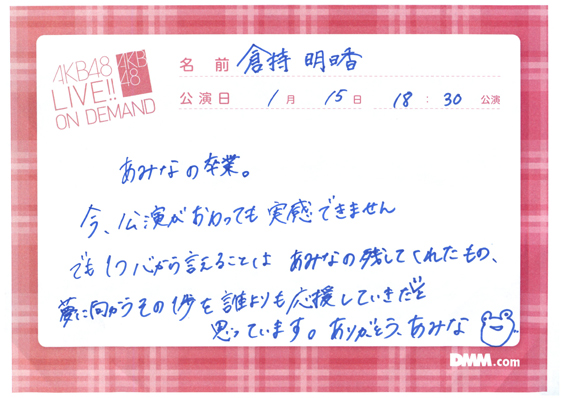 AKB48
LIVE!!
ON DEMAND
AKB
48
名 前 倉持 明日香
公演日 1月 15日 18:30 公演
あみなの卒業。
今、公演がおわっても実感できません
でも1つ心から言えることは あみなの残してくれたもの、
夢に向かうその1歩を誰よりも応援していきたいと
思っています。ありがとう、あみな
DMM.com